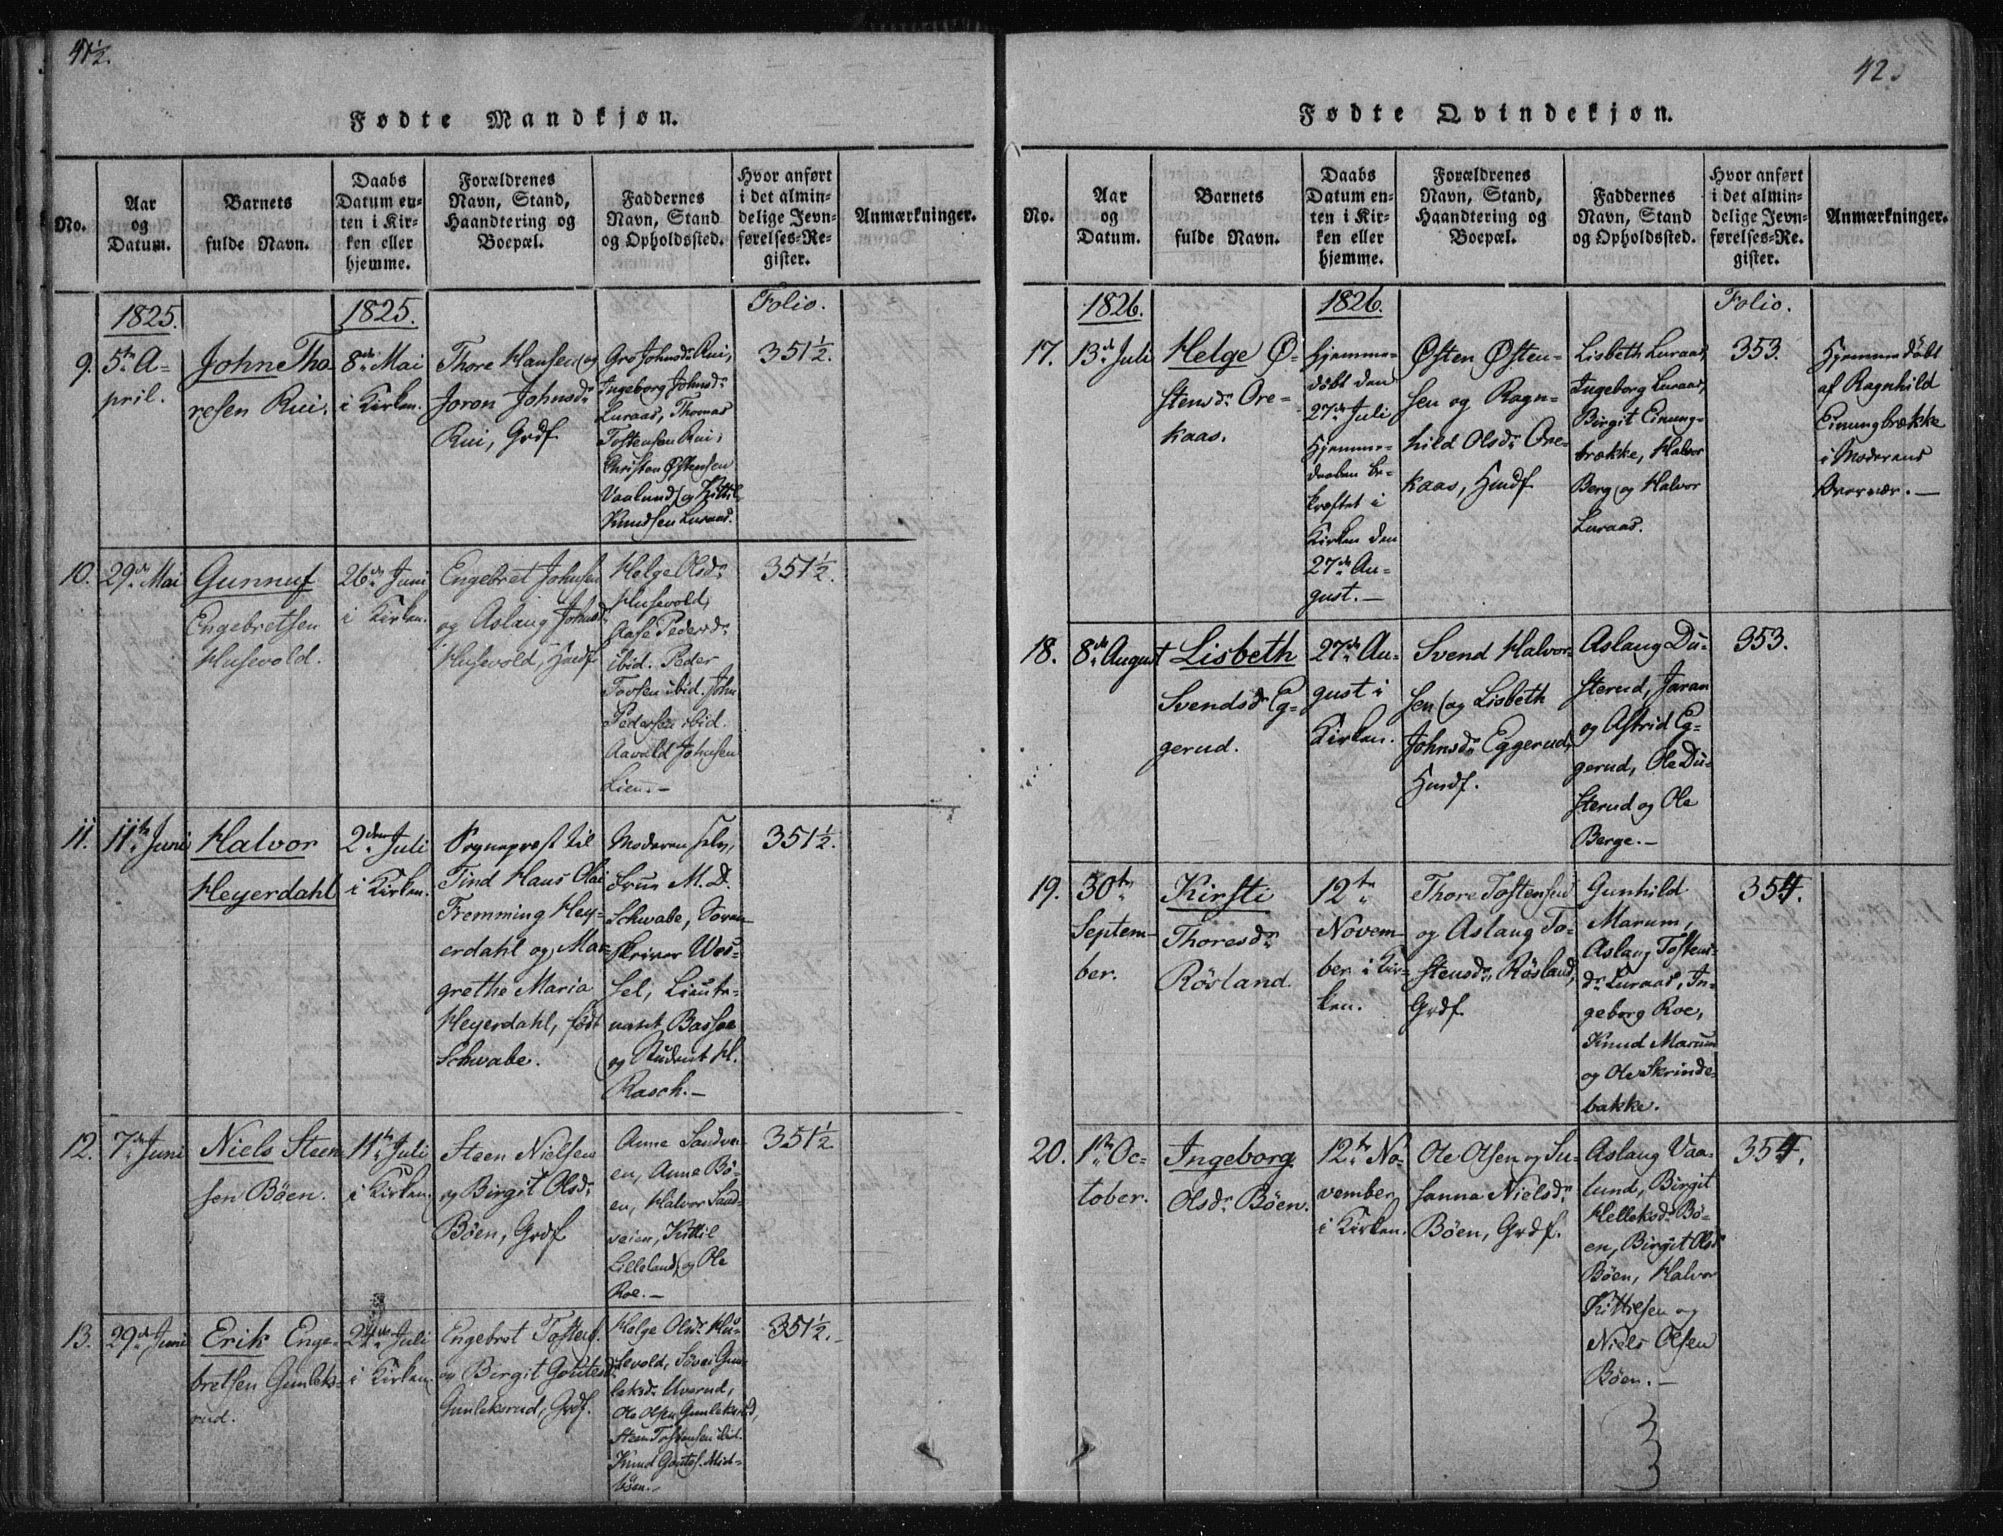 41½.
Fødte Mandkjøn.
No.
Aar
og
Datum.
Barnets
fulde Navn.
Daabs
Datum en-
ten i Kir-
ken eller
hjemme.
Forældrenes
Navn, Stand,
Haandtering og
Boepæl.
Faddernes
Navn, Stand
og Opholdssted.
Hvor anført
i det almin-
delige Jevn-
førelses-Re-
gister.
Anmærkninger.
1825.
1825.
Folio.
9.
5te A-
pril.
Johne Tho-
resen Rui.
8de Mai
i Kirken.
Thore Hansen og
Joron Johnsdr
Rui, Grdf
Gro Johnsdr Rui,
Ingeborg Johnsdr
Luraas, Thomas
Tostensen Rui,
Christen Østensen
Vaalund og Kittil
Knudsen Luraas.
351½.
10.
29de Mai
Gunnuf
Engebretsen
Husevold.
26de Juni
i Kirken.
Engebret Johnsen
og Aslaug Johnsdr
Husevold, Husdf
Helge Olsdr
Husevold,
Aase Pedersdr
ibid. Peder
Tovsen ibid. John
Pedersen ibid.
Aavald Johnsen
Lien.-
351½.
11.
11te Juni
Halvor
Heyerdahl
2den Juli
i Kirken.
Sognepræst til
Tind Hans Olai
Fremming Hey-
erdahl og Mar-
grethe Maria
Heyerdahl, født
Schwabe.
Moderen selv,
Frue M. D.
Schwabe, Soren-
skriver Wes-
sel, Lieute-
nant Bassøe
og Student H.
Rasch.-
351½.
12.
7de Juni
Niels Steen-
sen Bøen.
11te Juli
i Kirken.
Steen Nielsen
og Birgit Olsdr
Bøen, Grdf
Anne Sandvei-
en, Anne Bø-
en, Halvor Sand-
veien, Kittil
Lilleland, og Ole
Roe.-
351½
13.
29de Juni
Erik Enge-
bretsen Gunleks-
rud.
24de Juli
i Kirken.
Engebret Tostens.
og Birgit Goutesdr
Gunleksrud, Grdf.
Helge Olsdr Hu-
sevold, Søvei Gun-
leksdr Uverud,
Ole Olsen Gunleksrud,
Steen Tostensen ibid.
Knud Goutes. Mid-
bøen.-
351½.-
42.
Fødte Qvindekjøn.
No.
Aar
og
Datum.
Barnets
fulde Navn.
Daabs
Datum en-
ten i Kir-
ken eller
hjemme.
Forældrenes
Navn, Stand,
Haandtering og
Boepæl.
Faddernes
Navn, Stand
og Opholdssted.
Hvor anført
i det almin-
delige Jevn-
førelses-Re-
gister.
Anmærkninger.
1826.
1826.
Folio.
17.
13de Juli
Helge Ø-
stensdr Ore-
kaas.
Hjemme-
døbt den
27de Juli
Hjemme-
daaben be-
kræftet i
Kirken den
27de Au-
gust.-
Østen Østen-
sen og Ragn-
hild Olsdr Ore-
kaas, Husdf
Lisbeth Luraas,
Ingeborg Luraas,
Birgit Einung-
brække, Halvor
Berg og Halvor
Luraas.
353.
Hjemmedøbt
af Ragnhild
Einungbrække
i Moderens
Overvær.-
18.
8de August
Lisbeth
Svendsdr Eg-
gerud.
27de Au-
gust i
Kirken.
Svend Halvor-
sen og Lisbeth
Johnsdr Eggerud,
Husdf.
Aslaug Du-
sterud, Jaran
og Astrid Eg-
gerud, Ole Du-
sterud og Ole
Berge.-
353.
19.
30te
Septem-
ber.
Kirsti
Thoresdr
Røsland.
12te
Novem-
ber i Kir-
ken.
Thore Tostensen
og Aslaug To-
stensdr, Røsland,
Grdf
Gunhild
Marum,
Aslaug Tostens-
dr Luraas, In-
geborg Roe,
Knud Marum
og Ole Skrinde-
bakke.
354.
20.
1ste Oc-
tober.
Ingeborg
Olsdr Bøen.
12te No-
vember
i Kirken.
Ole Olsen og Su-
sanna Nielsdr
Bøen, Grdf.
Aslaug Vaa-
lund, Birgit
Helleksdr Bø-
en, Birgit Olsdr
Bøen, Halvor
Kittilsen og
Niels Olsen
Bøen.-
354.